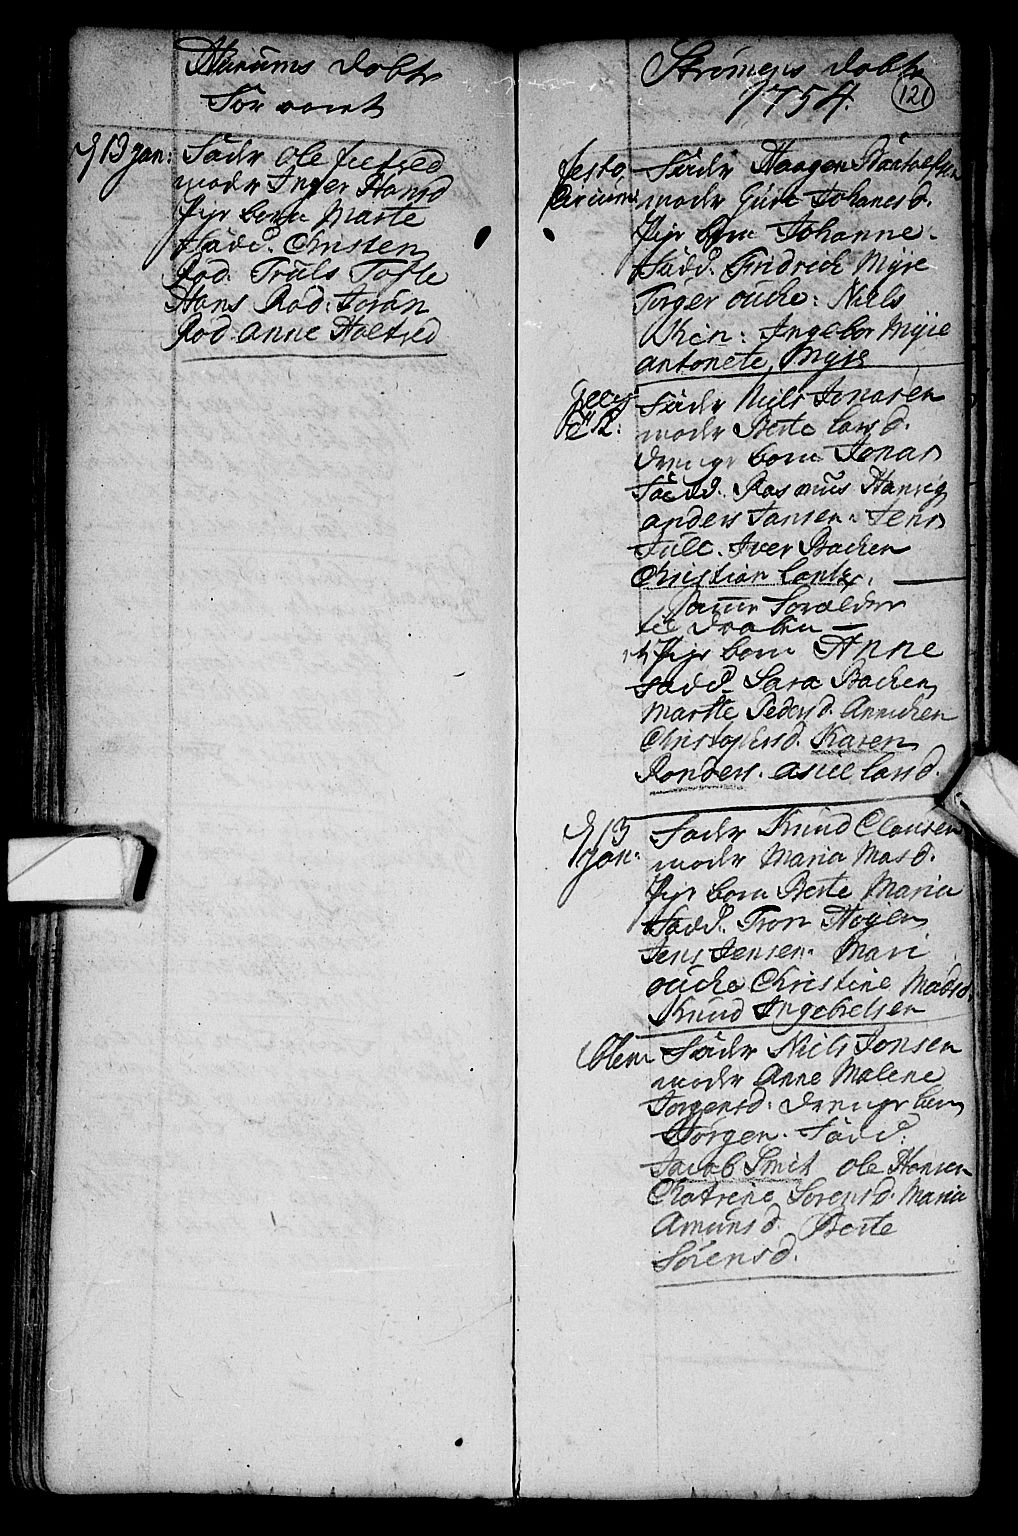 Hurums Dobte
for anet
D 13 Jan:
Fadr Ole
modr Inger Hansd
Pige barn Marte
Fadd. Christen
Rød. Truls Tofte
Hans Rød: Joran
Rød Anne Holtsed
Strømens Dobte
1754.
121
festo
Circums:
Fadr Haagen
modr Guri Johanesd.
Pige barn Johanne.
Fadd. Fridrich Myre
Torger oucke: Niels
Ingebor Myre
antonete Myre
Fadr Niels Jonasen
modr Berte Larsd.
drenge barn Jonas
Fadd. Rasmus Hansig
anders Jansen. Jens
Juel. Iver Backen
Christian
til Daaben
Pige barn Anne
Fadd. Sara Backen
Marthe Pedersd. Annichen
Christophersd. Karen
Ronders. asue Larsd.
D 13
Jan:
Fader Knud Clausen
moder Maria Masd.
Pige barn Berte Maria
Fadd. Tron Høyen
Jens Jensen. Mari
oucke Christine Madsd.
Knud Ingebretsen
Fadr Niels Jonsen
modr Anne Malene
Jorgensd. Drenge barn
Jørgen. Fadd:
Jacob Smit Ole Hansen
Chatrine Sorensd. Maria
Amunsd. Berte
Sørensd.